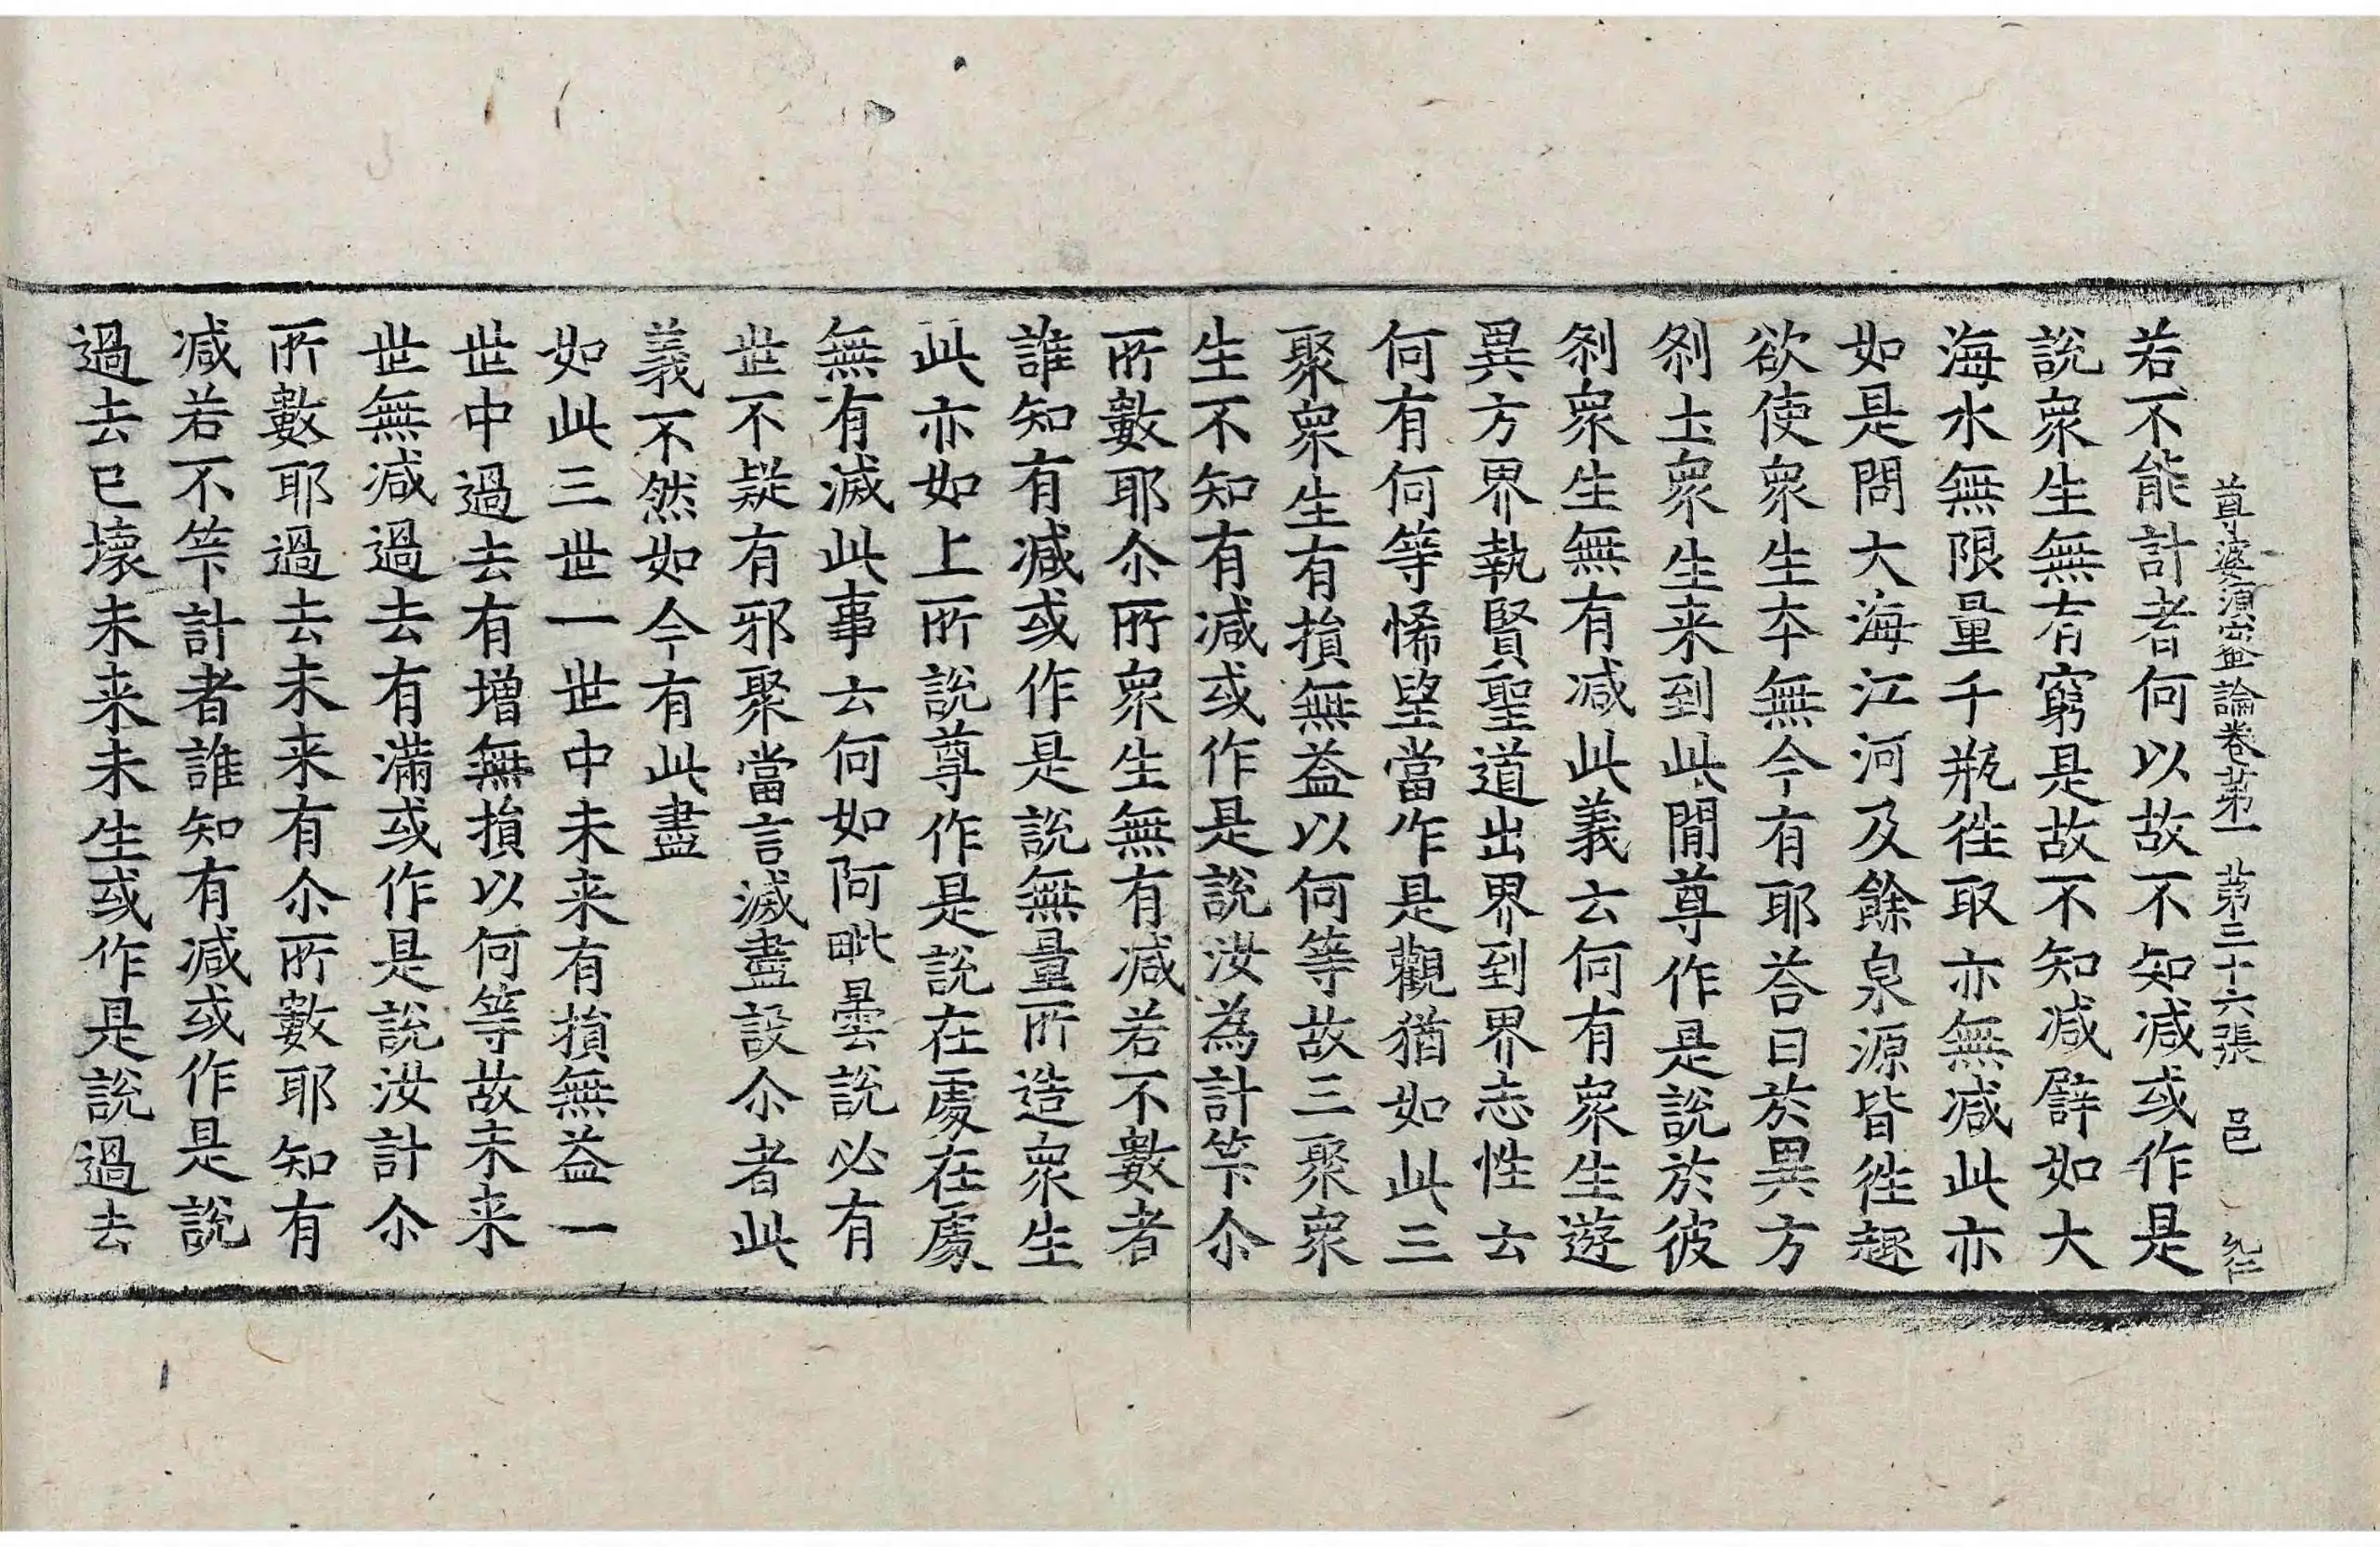 尊婆須蜜論卷第一 第三十六張 邑
若不能計者何以故不知减或作是
說衆生無有窮是故不知减譬如大
海水無限量千瓶徃取亦無减此亦
如是問大海江河及餘泉源皆徃趣
欲使衆生本無今有耶荅曰於異方
刹土衆生来到此閒尊作是說於彼
刹衆生無有减此義云何有衆生遊
異方界執賢聖道出界到界志性云
何有何等悕望當作是觀猶如此三
聚衆生有損無益以何等故三聚衆
生不知有减或作是說汝為計竿尒
所數耶尒所衆生無有减若不數者
誰知有减或作是說無量所造衆生
此亦如上所說尊作是說在處在處
無有滅此事云何如阿毗曇說必有
世不疑有邪聚當言滅盡設尒者此
義不然如今有此盡
如此三世一世中未来有損無益一
世中過去有增無損以何等故未来
世無减過去有滿或作是說汝計尒
所數耶過去未来有尒所數耶知有
减若不竿計者誰知有减或作是說
過去已壞未来未生或作是說過去